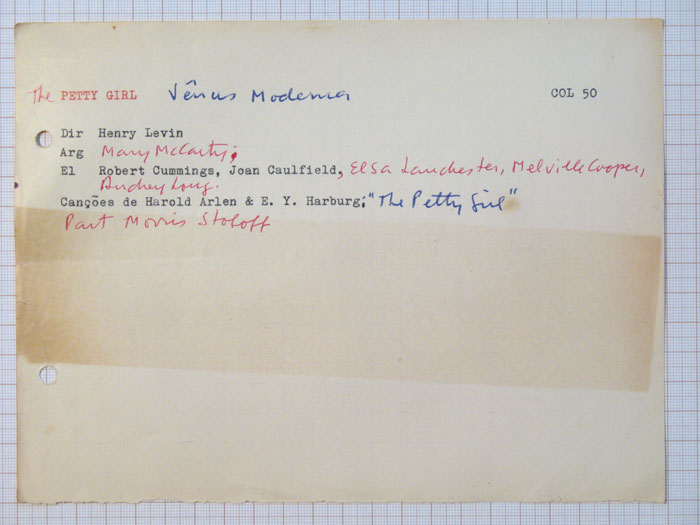 The PETTY GIRL Vênus Moderna COL 50
Dir Henry Levin
Arg Mary McCarty;
El Robert Cummings, Joan Caulfield, Elsa Lanchester, Melville Cooper,
Audrey Long.
Canções de Harold Arlen & E. Y. Harburg; "The Petty Girl"
Part Morris Stoloff